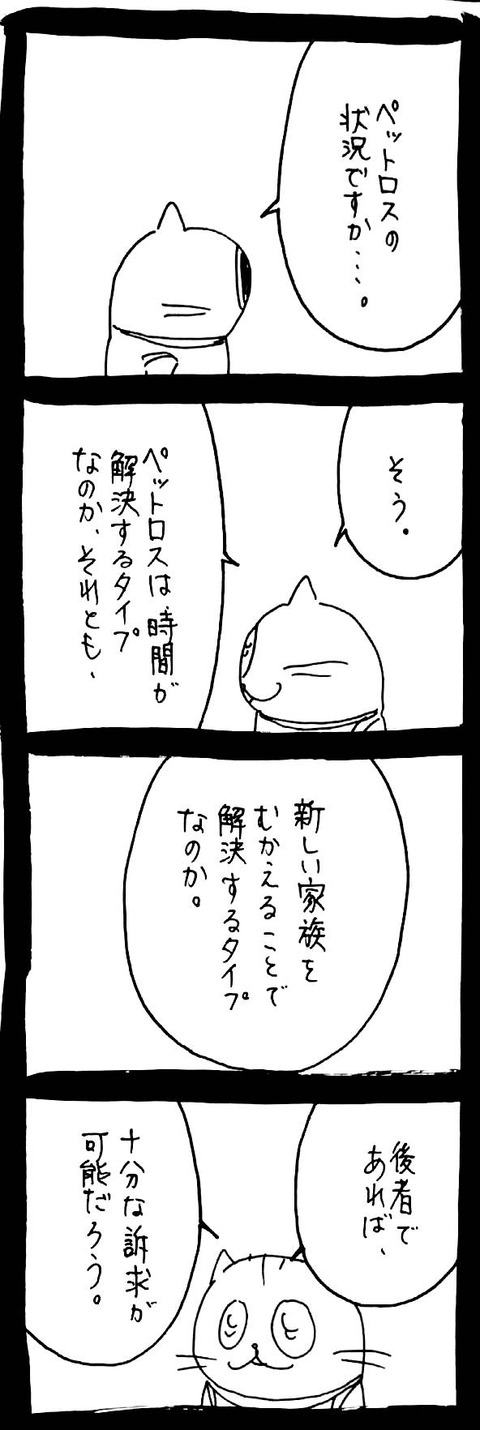 ペットロスの
状況ですか…。
そう。
ペットロスは時間が
解決するタイプ
なのか、それとも、
新しい家族を
むかえることで
解決するタイプ
なのか。
後者で
あれば、
十分な訴求が
可能だろう。